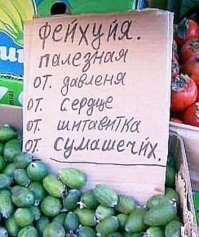 ФЕЙХУЙЯ.
палезная
от. давленя
от. сердце
от. шитавитка
от. сумашечих.